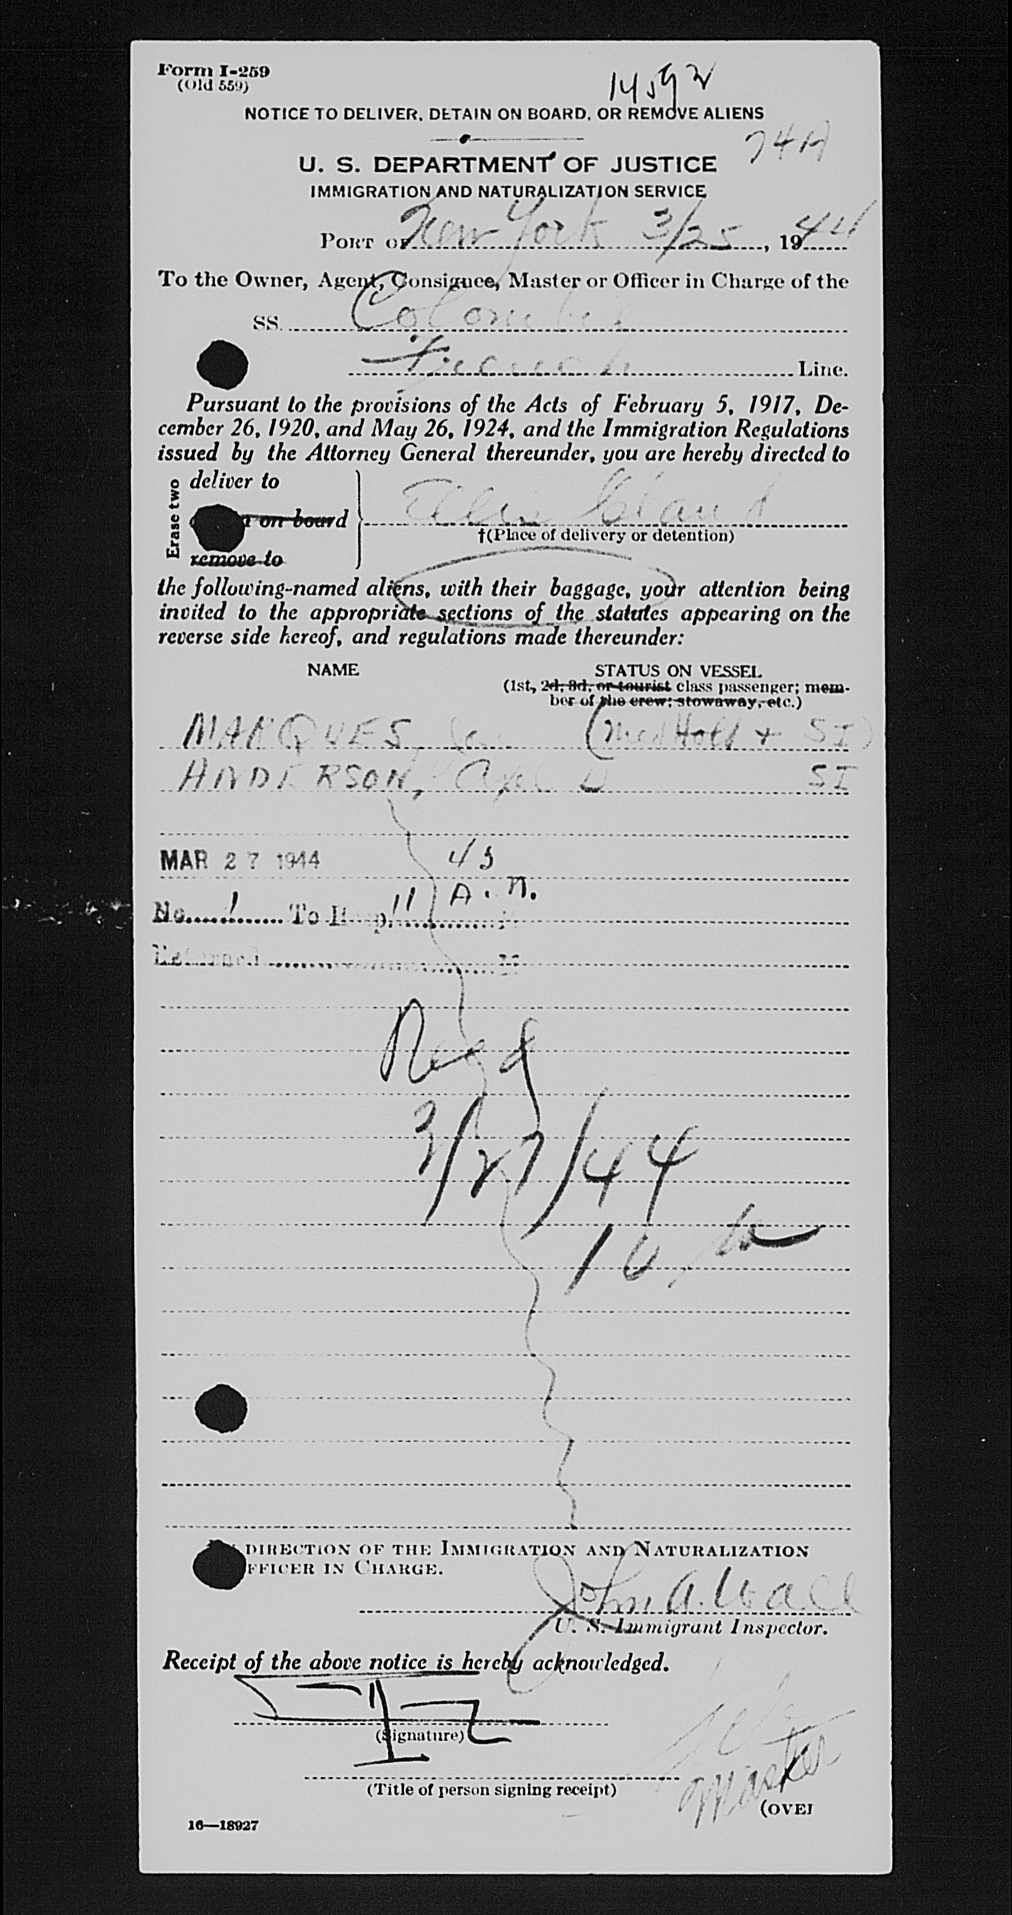 Form I-259
(Old 559)
14592
NOTICE TO DELIVER, DETAIN ON BOARD, OR REMOVE ALIENS
74A
U. S. DEPARTMENT OF JUSTICE
IMMIGRATION AND NATURALIZATION SERVICE
PORT OF New York 3/25, 1944
To the Owner, Agent, Consignee, Master or Officer in Charge of the
SS. Colombie
French Line.
Pursuant to the provisions of the Acts of February 5, 1917, De-
cember 26, 1920, and May 26, 1924, and the Immigration Regulations
issued by the Attorney General thereunder, you are hereby directed to
Erase two
deliver to
on board
remove to
Ellis Island
†(Place of delivery or detention)
the following-named aliens, with their baggage, your attention being
invited to the appropriate sections of the statutes appearing on the
reverse side hereof, and regulations made thereunder:
NAME STATUS ON VESSEL
(1st, 2d, 3d, or tourist class passenger; mem-
ber of the crew; stowaway, etc.)
MARQUES, (Med Hold + SI)
ANDERSON, Axel D SI
MAR 27 1944 45
A. N.
No. 1 To Hosp. 11 M
Returned M
Recd
3/27/44
10
DIRECTION OF THE IMMIGRATION AND NATURALIZATION
OFFICER IN CHARGE.
John A. Wall
U. S. Immigrant Inspector.
Receipt of the above notice is hereby acknowledged.
(Signature)
Master
(Title of person signing receipt)
(OVER
16—18927